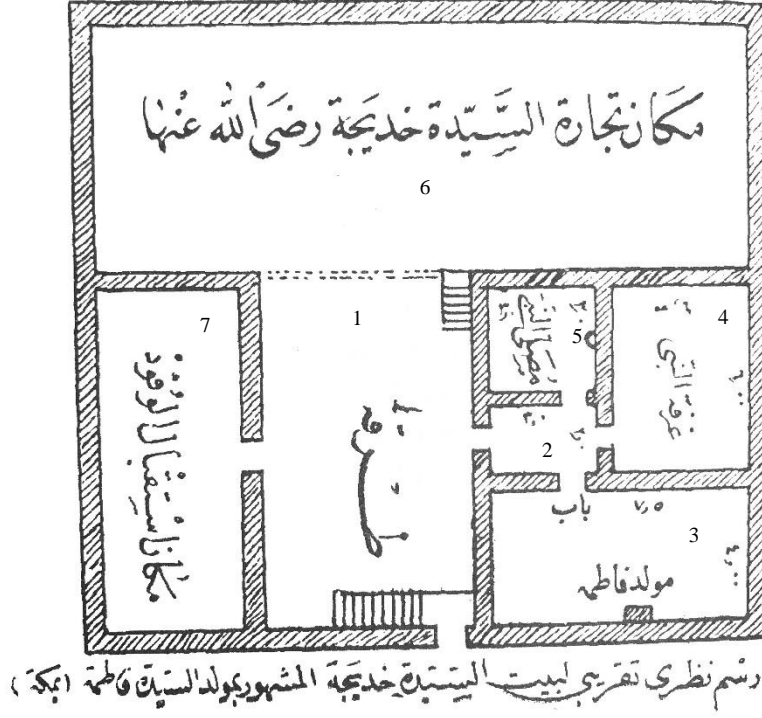 مكان تجارة السيدة خديجة رضي الله عنها
6
7
مكان استقبال الوفود
1
5
مصلى النبي
4
غرفة النبي
2
3
باب
٧٫٥
٤٫٠٠
مولد فاطمة
رسم نظري تقريبي لبيت السيدة خديجة المشهور بمولد السيدة فاطمة (بمكة)